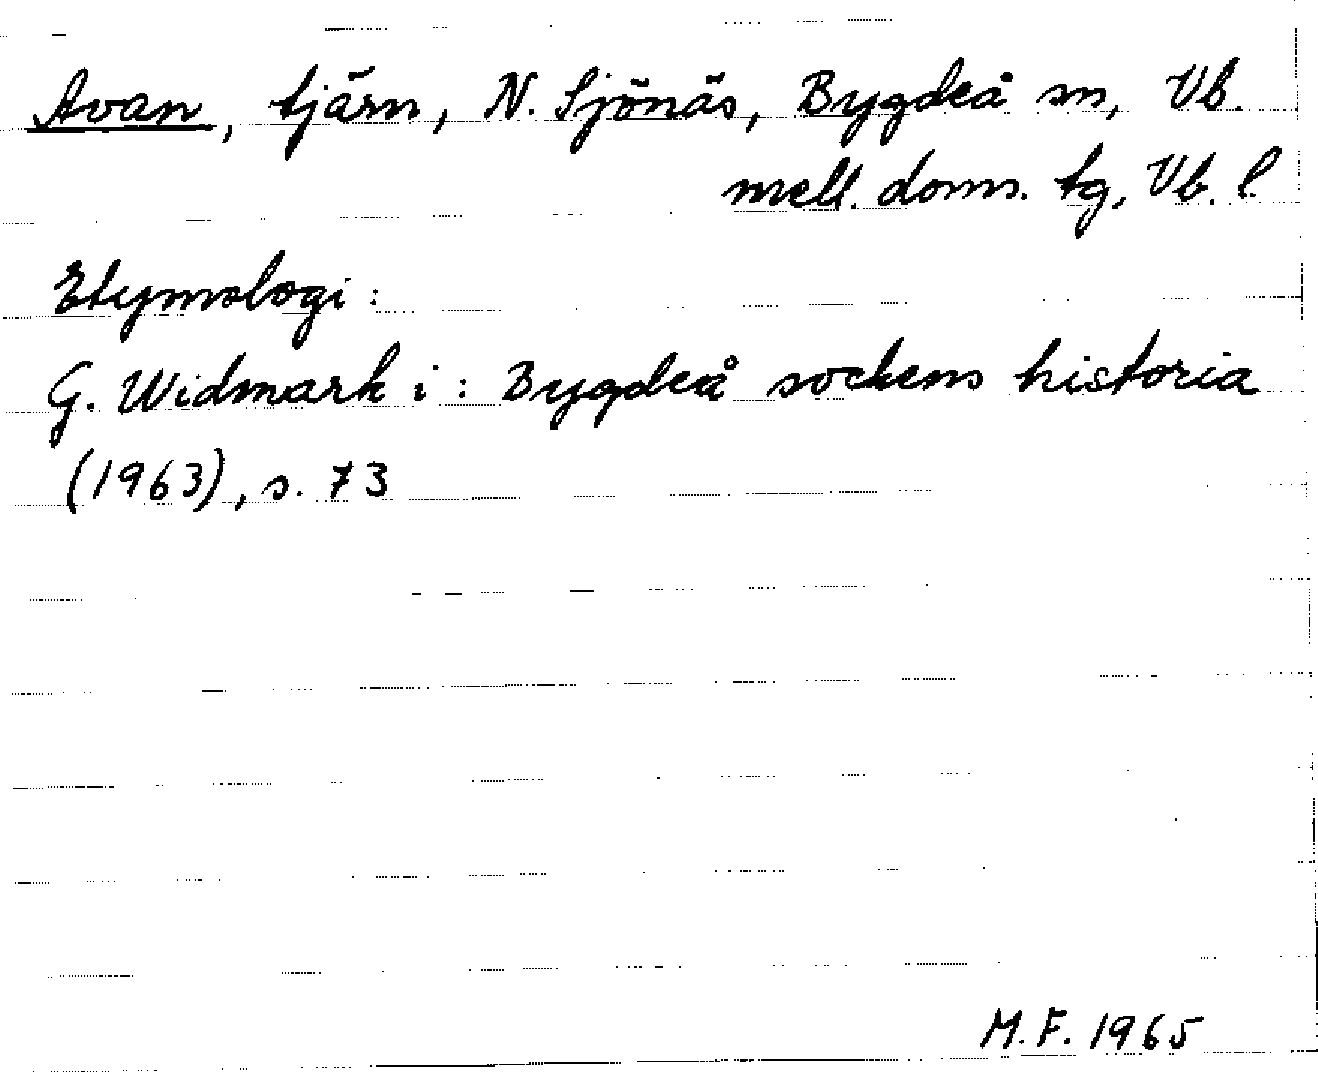 Avan, tjärn, N. Sjönäs, Bygdeå sn, Vb.
mell. doms. tg, Vb. l.
Etymologi:
G. Widmark i: Bygdeå sockens historia
(1963), s. 73
M.F. 1965